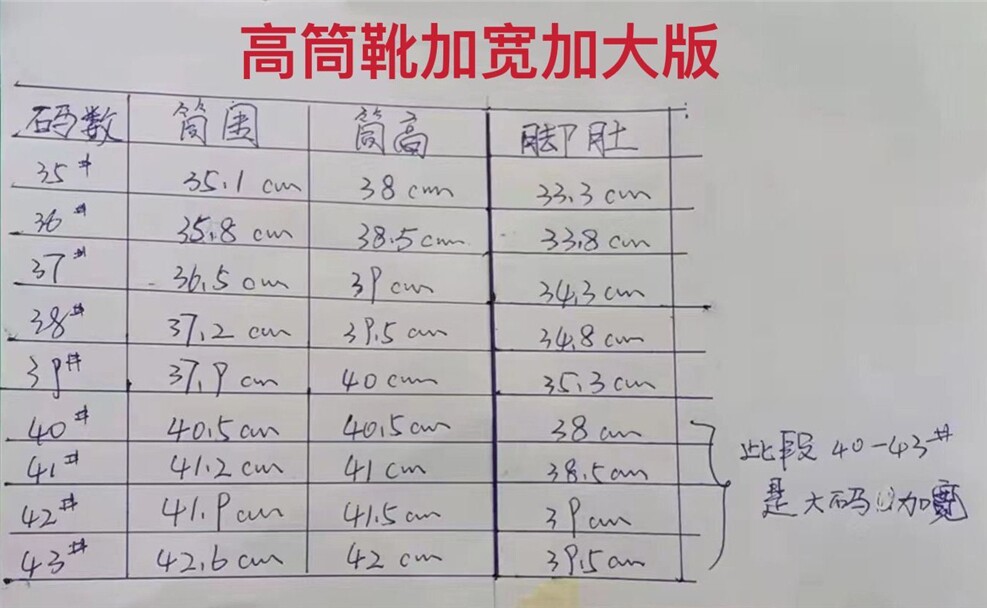 高筒靴加宽加大版
码数 筒围 筒高 脚肚
35# 35.1cm 38cm 33.3cm
36# 35.8cm 38.5cm 33.8cm
37# 36.5cm 39cm 34.3cm
38# 37.2cm 39.5cm 34.8cm
39# 37.9cm 40cm 35.3cm
40# 40.5cm 40.5cm 38cm
41# 41.2cm 41cm 38.5cm
42# 41.9cm 41.5cm 39cm
43# 42.6cm 42cm 39.5cm
此段40-43#
是大码加宽